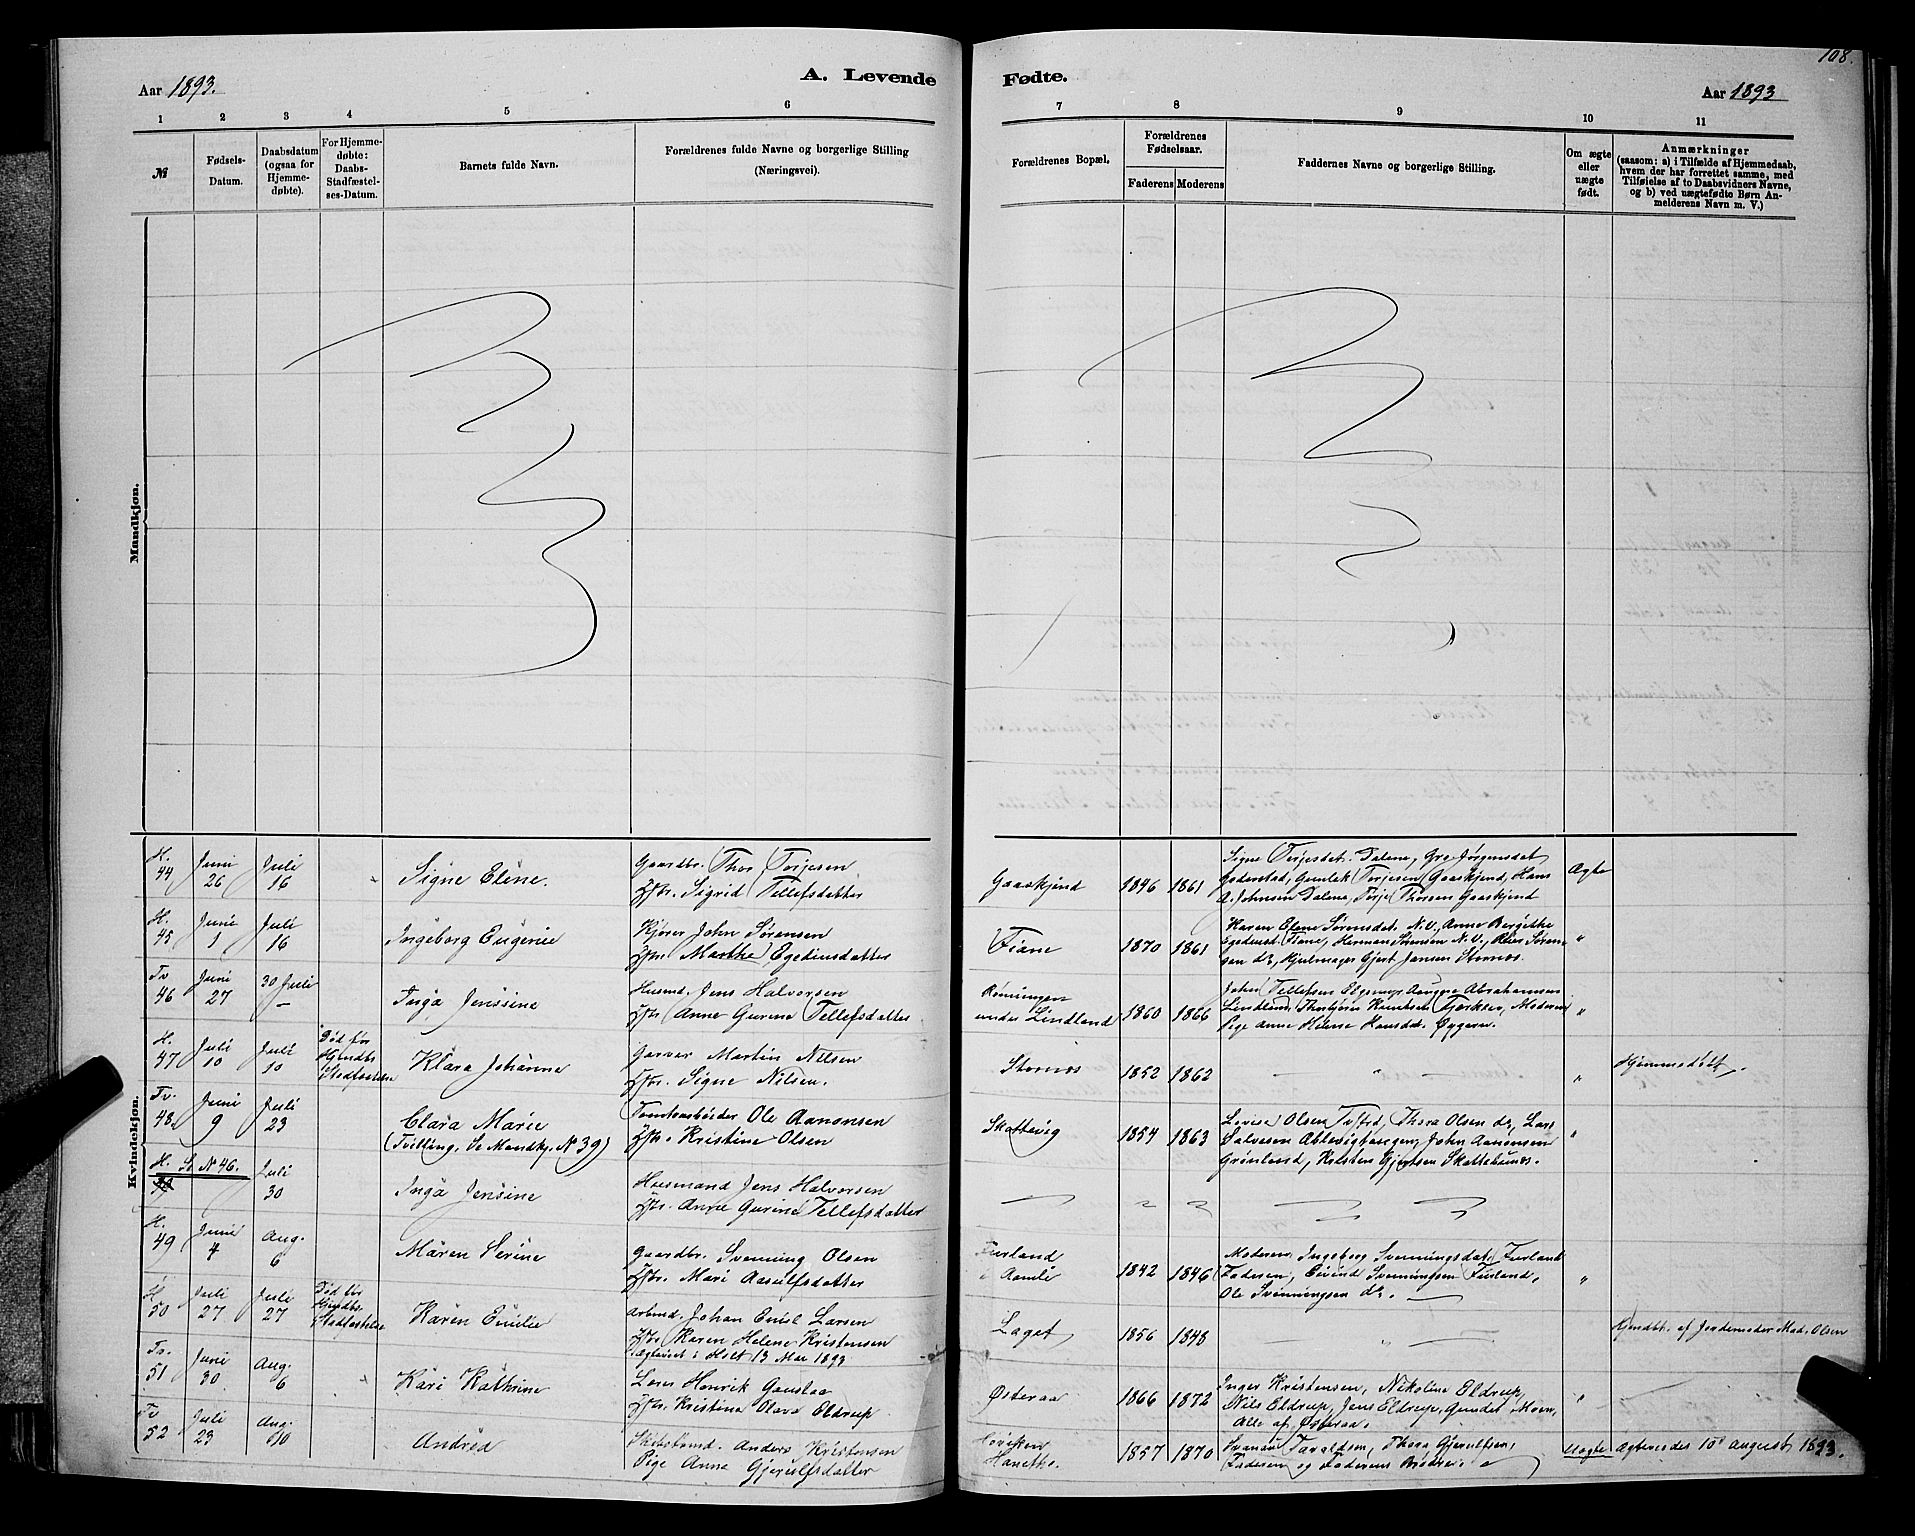 108.
Aar 1893.
A. Levende
Fødte.
Aar 1893
1 2 3 4 5 6
7 8 9 10 11
№
Fødsels-
Datum.
Daabsdatum
(ogsaa for
Hjemme-
døbte).
For Hjemme-
døbte:
Daabs-
Stadfæstel-
ses-Datum.
Barnets fulde Navn.
Forældrenes fulde Navne og borgerlige Stilling
(Næringsvei).
Forældrenes Bopæl.
Forældrenes
Fødselsaar.
Faderens Moderens
Faddernes Navne og borgerlige Stilling.
Om ægte
eller
uægte
født.
Anmærkninger
(saasom: a) i Tilfælde af Hjemmedaab,
hvem der har forrettet samme, med
Tilføielse af to Daabsvidners Navne,
og b) ved uægtefødte Børn An-
melderens Navn m. V.)
Mandkjøn.
Kvindekjøn.
H.
44
Juni
26
Juli
16
Signe Elene.
Gaardbr. Thor Torjesen
Hstr. Sigrid Tellefsdatter
Gaaskjend
1846 1861
Signe Terjesdat. Dalene, Gro Jörgensdat
Goderstad, Gunlek Torjesen Gaaskjend, Hans
A. Johnsen Dalene, Torje Thorsen Gaaskjend
Ægte
H.
45
Juni
1
Juli
16
Ingeborg Eugenie
Kjører John Sørensen
Hstr. Marthe Egedinsdatter
Fiane
1870 1861
Karen Elene Sörensdat. N.V., Anne Bergithe
Fiane, Herman Sörensen N.V., Sören-
sen do, Hjulmager Gjert Jensen Stornes.
"
Tv
46
Juni
27
30 Juli
Inga Jenssine
Husmd. Jens Halvorsen
Hstr. Anne Gurine Tellefsdatter
Rønningen
under Lindland
1860 1866
John Tellefsen Aamund Abrahamsen
Lindland, Thorbjörn Knudsen Moderen
Pige Anne Helene Hansdat.
"
H.
47
Juli
10
Juli
10
Död før
Hjmdbs.
Stadfæstelse
Klara Johanne
Garver Martin Nilsen
Hstr. Signe Nilsen.
Stornes
1852 1862
"
"
Hjemmedöbt.
Tv.
48.
Juni
9
Juli
23
Clara Marie
(Tvilling, Se Mandkj. N 39)
Tomtearbeider Ole Aanonsen
Hstr. Kristine Olsen
Skottevig
1854 1863
Lovise Olsen Thora Olsen do, Lars
Salvesen John Aanonsen
Grönland, Kristen Gjertsen
"
H. Se N 46.
Juli
30
Inga Jensine
Husmand Jens Halvorsen
Hstr. Anne Gurine Tellefsdatter
H.
49
Juni
4
Aug.
6
Maren Serine
Gaardbr. Svenning Olsen
Hstr. Mari Aasulfsdatter
Furland
i Aamli
1842 1846
Moderen, Ingeborg Svenningsdat. Furland
Faderen, Eivind Svenningsen Furland,
Ole Svenningsen do.
"
H
50
Juli
27
Juli
27
Död før
Hjmdbs.
Stadfæstelse
Karen Emilie
Arbmd. Johan Emil Larsen
Hstr. Karen Helene Kristensen
Ægteviet i Holt 13 Mai 1893
Laget
1856 1848
"
Hjmdbt. af Jordemoder Mad. Olsen
Tv.
51
Juni
30
Aug.
6
Kari Kathrine
Lars Henrik Gauslaa
Hstr. Kristine Olava Eldrup
Østeraa
1866 1872
Inger Kristensen, Nikoline Eldrup,
Nils Eldrup, Jens Eldrup, Gundet Moen,
Alle af Østeraa.
"
Tv
52
Juli
23
Aug.
Andrea
Skibstømd. Anders Kristensen
Pige Anne Gjerulfsdatter
1857 1870
Tavaldsen, Thora Gjerulfsen,
Faderen og Faderens Broder.
Uægte
Ægteviedes 10de August 1893.